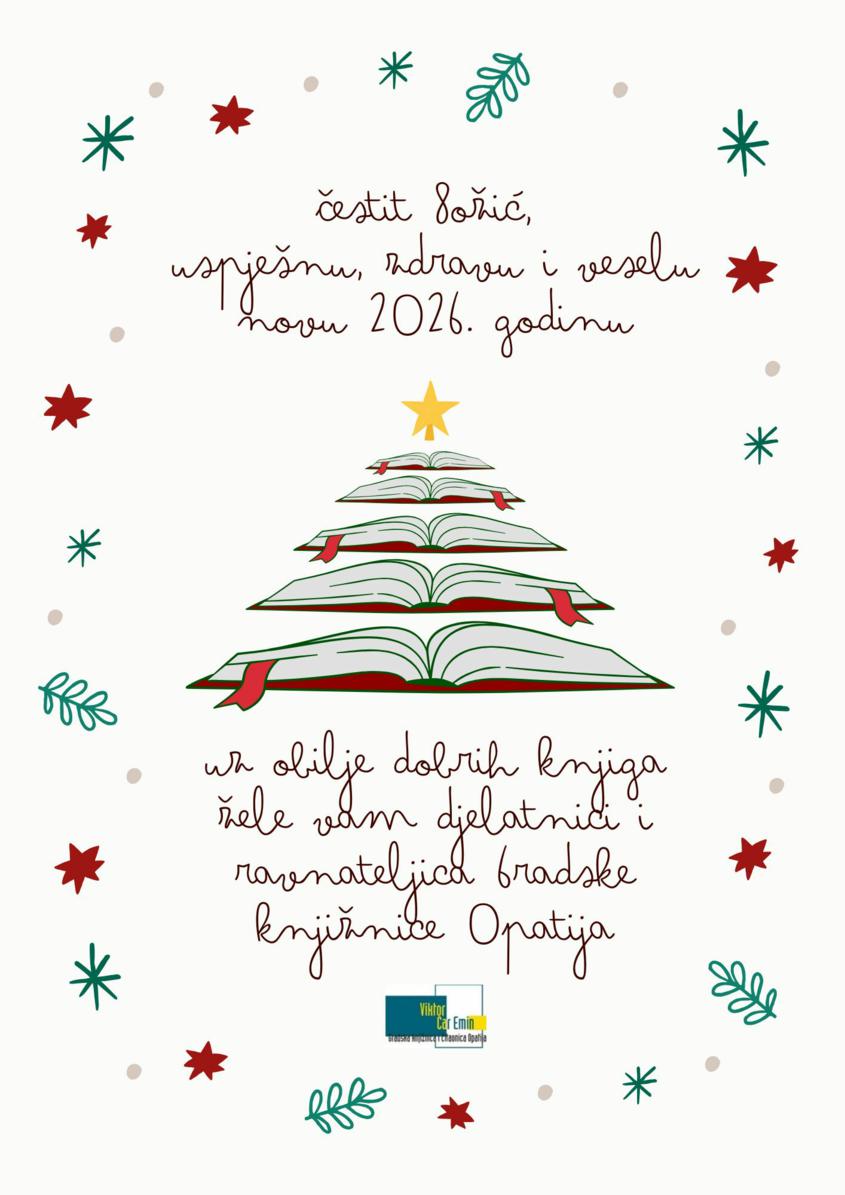 čestit Božić,
uspješnu, zdravu i veselu
novu 2026. godinu
uz obilje dobrih knjiga
žele vam djelatnici i
ravnateljica Gradske
knjižnice Opatija
Viktor
Car Emin
Gradska knjižnica i čitaonica Opatija